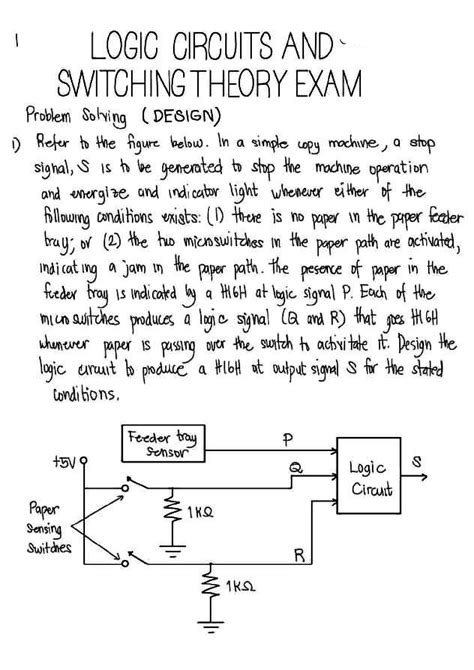 1
LOGIC CIRCUITS AND
SWITCHING THEORY EXAM
Problem Solving (DESIGN)
1) Refer to the figure below. In a simple copy machine, a stop
signal, S is to be generated to stop the machine operation
and energize and indicator light whenever either of the
following conditions exists: (1) there is no paper in the paper feeder
tray; or (2) the two microswitches in the paper path are activated,
indicating a jam in the paper path. The presence of paper in the
feeder tray is indicated by a HIGH at logic signal P. Each of the
microswitches produces a logic signal (Q and R) that goes HIGH
whenever paper is passing over the switch to activitate it. Design the
logic circuit to produce a HIGH at output signal S for the stated
conditions.
Feeder tray
Sensor
P
+5V
Q
Logic
Circuit
S
Paper
Sensing
Switches
1KΩ
R
1KΩ